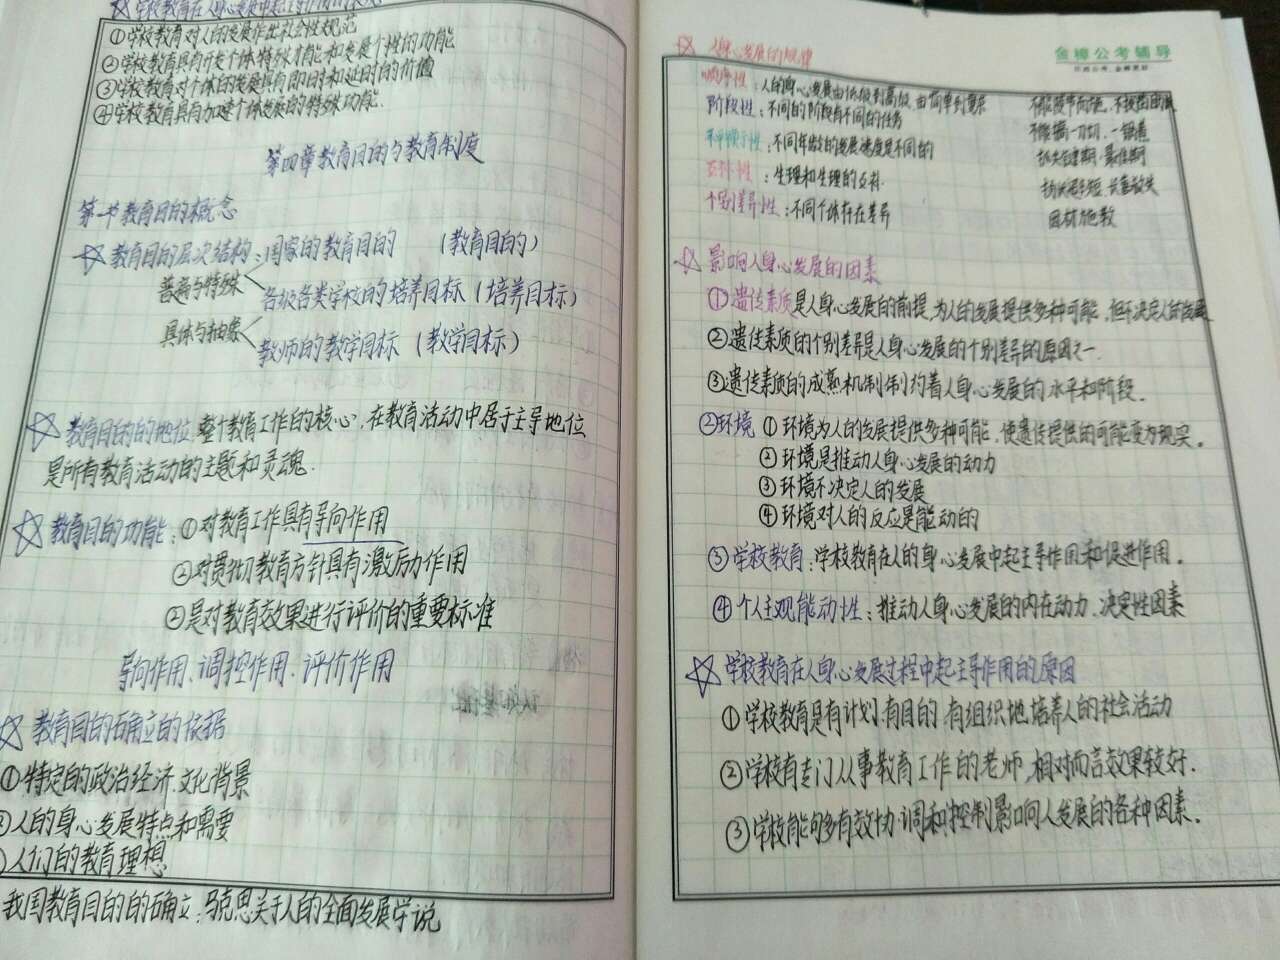 ☆ 学校教育在人身心发展中起主导作用的表现
①学校教育对人的发展作出社会性规范
②学校教育具有开发个体特殊才能和发展个性的功能
③学校教育对个体的发展具有即时和延时的价值
④学校教育具有加速个体发展的特殊功能.
第四章教育目的与教育制度
第一节教育目的概念
☆教育目的层次结构:国家的教育目的 (教育目的)
普遍与特殊 各级各类学校的培养目标(培养目标)
具体与抽象 教师的教学目标 (教学目标)
☆教育目的的地位 整个教育工作的核心,在教育活动中居于主导地位
是所有教育活动的主题和灵魂.
☆教育目的功能:①对教育工作具有导向作用
②对贯彻教育方针具有激励作用
③是对教育效果进行评价的重要标准
导向作用、调控作用、评价作用
☆教育目的确立的依据
①特定的政治经济.文化背景
②人的身心发展特点和需要
人们的教育理想
我国教育目的的确立:马克思关于人的全面发展学说
金樟公考辅导
☆ 人身心发展的规律
顺序性:人的身心发展由低级到高级.由简单到复杂
阶段性:不同的阶段有不同的任务 不能搞一切切.一锅煮
不平衡性:不同年龄的发展速度是不同的 抓关键期.最佳期
互补性:生理和生理的互补. 扬长避短.长善救失
个别差异性:不同个体存在差异 因材施教
☆ 影响人身心发展的因素
①遗传素质是人身心发展的前提,为人的发展提供多种可能,但不决定人的发展
②遗传素质的个别差异是人身心发展的个别差异的原因之一.
③遗传素质的成熟机制制约着人身心发展的水平和阶段.
②环境 ①环境为人的发展提供多种可能,使遗传提供的可能变为现实。
②环境是推动人身心发展的动力
③环境不决定人的发展
④环境对人的反应是能动的
③学校教育:学校教育在人的身心发展中起主导作用和促进作用。
④个人主观能动性:推动人身心发展的内在动力.决定性因素
☆学校教育在人身心发展过程中起主导作用的原因
①学校教育是有计划.有目的.有组织地培养人的社会活动
②学校有专门从事教育工作的老师,相对而言效果较好.
③学校能够多有效协.调和控制影响人发展的各种因素.